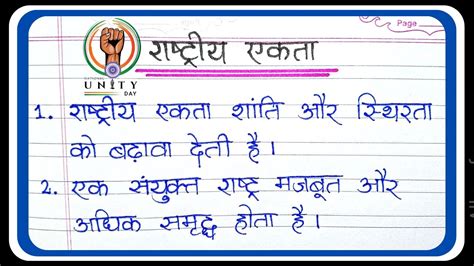 Page
राष्ट्रीय एकता
NATIONAL
UNITY
DAY
1. राष्ट्रीय एकता शांति और स्थिरता
को बढ़ावा देती है।
2. एक संयुक्त राष्ट्र मजबूत और
अधिक समृद्ध होता है।